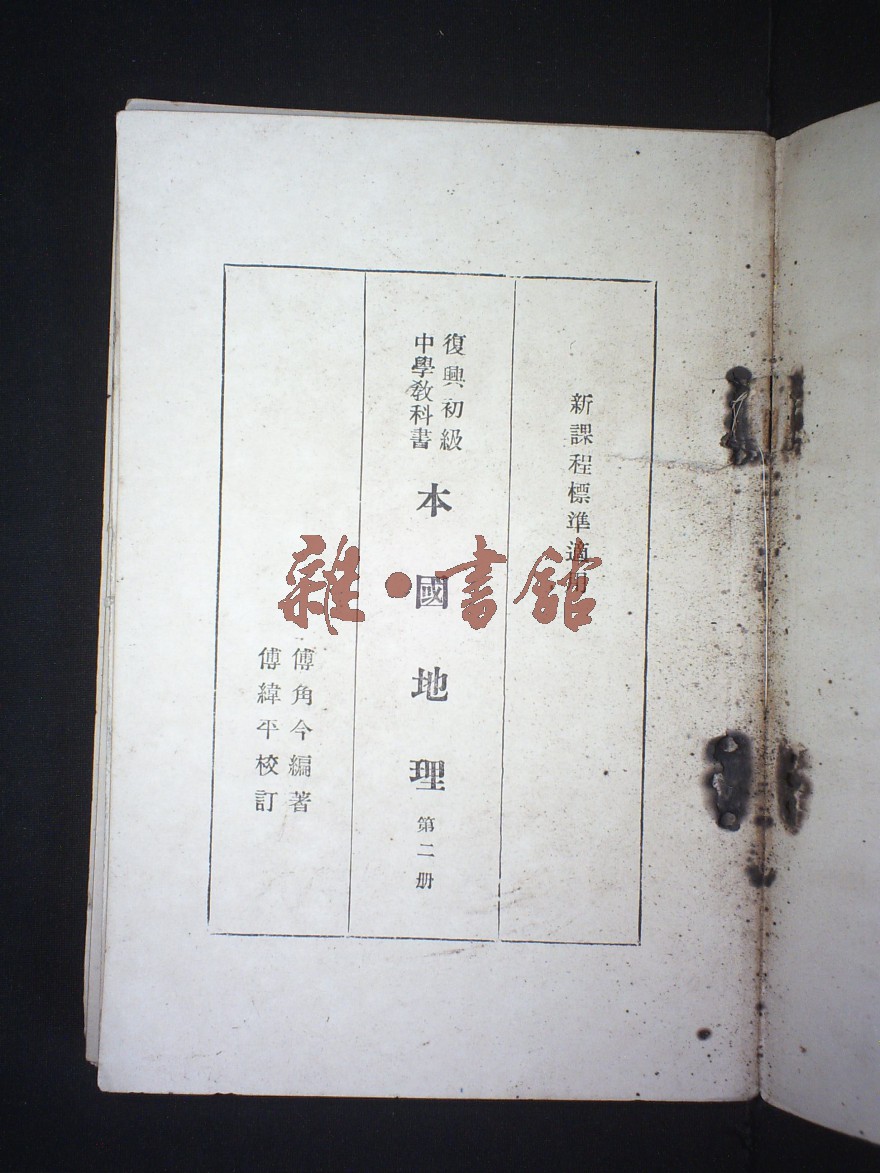 新課程標準適用
復興初級
中學教科書
本國地理
第二册
傅角今編著
傅緯平校訂
雜·書館